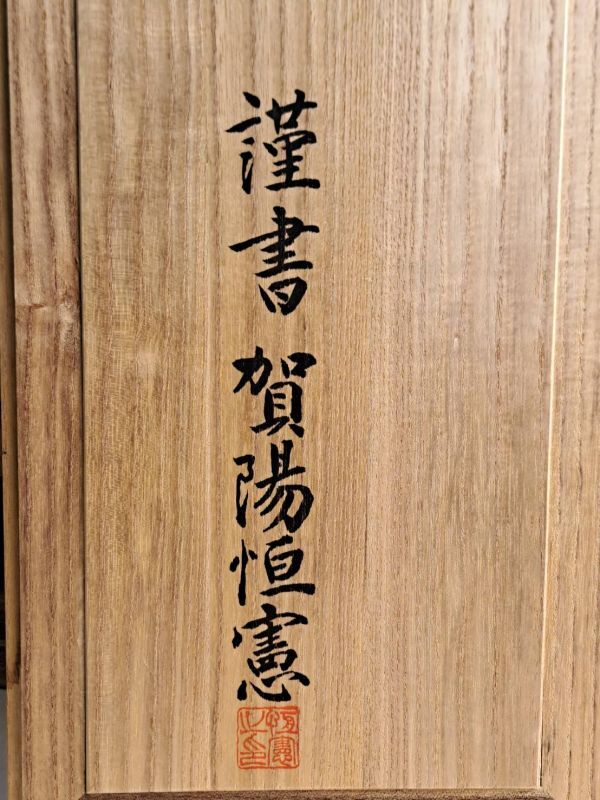 謹書 賀陽恒憲
恒憲之印